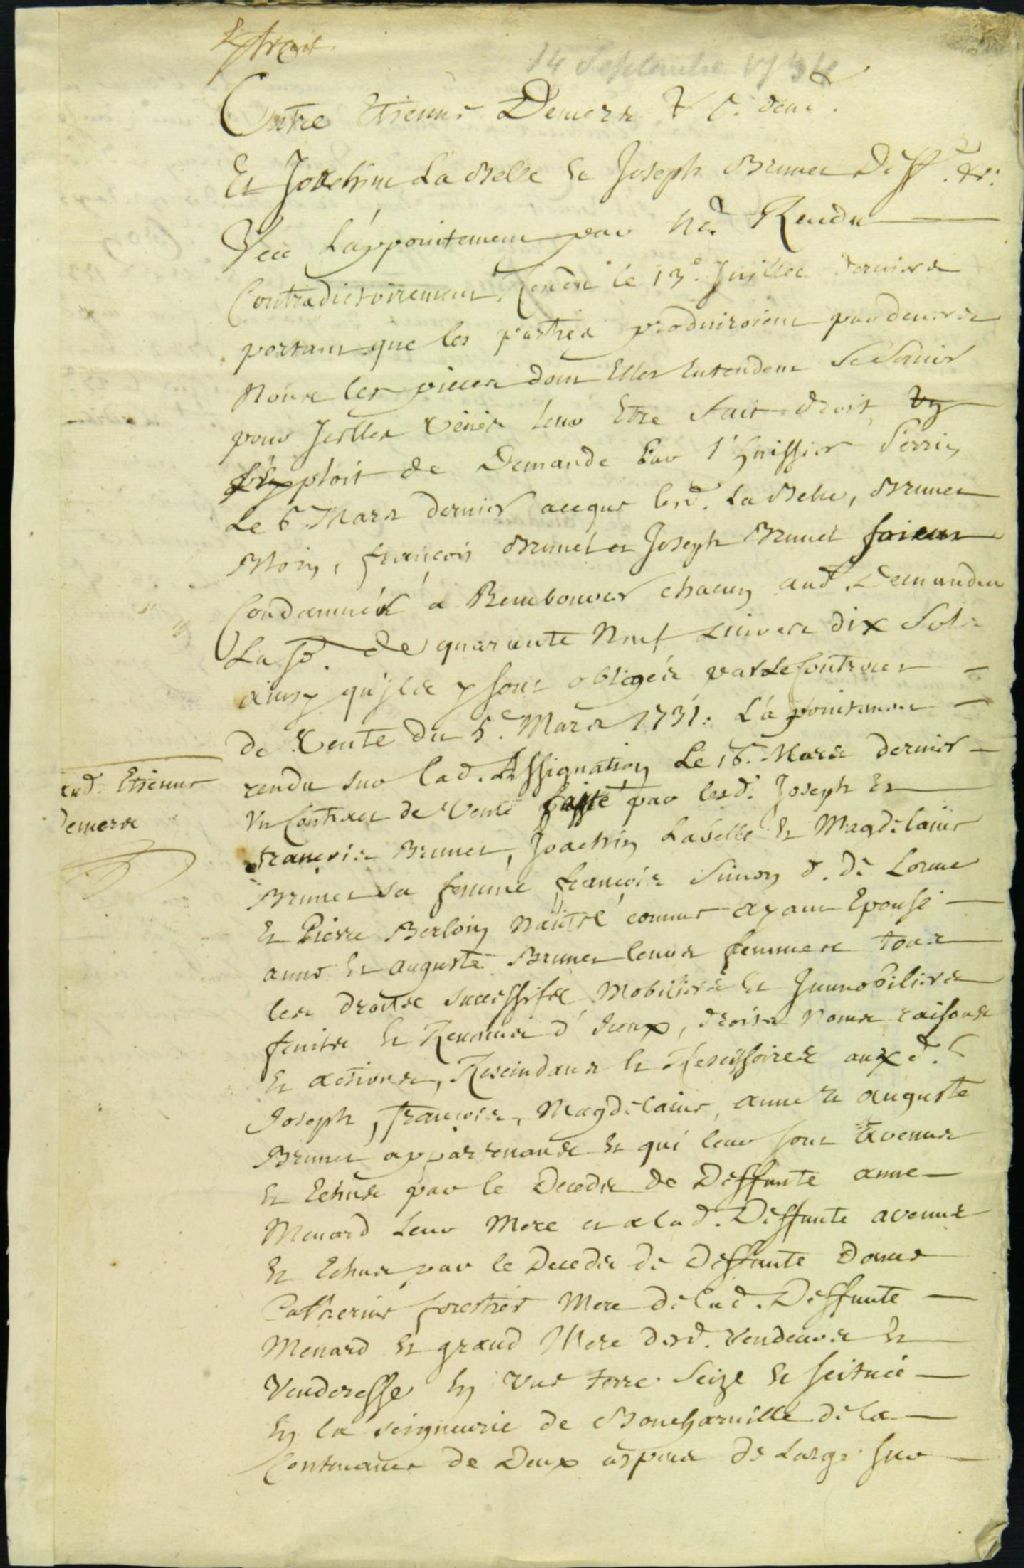 Extrait
14 Septembre 1734
Entre Etienne Demers &c. dend.
Et Joachim La Belle Et Joseph Brunet Deff. &c.
Veu L'appointement par Nd. Rendu
Contradictoirement Rendu le 13e. Juillet dernier
portant que les parties produiroient pardevers
Nous les pieces dont Elles Entendent Se Servir
pour Icelles veües leur Etre fait droit,
ploit de Demande par l'huissier Perrin
Le 6 Mars dernier aceque lesd. La Belle, Brunet
Bloin, françois Brunet et Joseph Brunet soient
Condamnés a Rembourcer chacun aud. Demandeur
La so. de quarante Neuf Livres dix Sols
ainsy qu'ils y sont obligés par Le Contract
De Vente du 5e. Mars 1731. L'apointement
rendu sur lad. Assignation Le 16. Mars dernier
Un Contract de Vente faitte par lesd. Joseph Et
aud. Etienne
Demers
françois Brunet, Joachin Labelle Et Magdelaine
Brunet sa femme françois Simon d. De Lorme
Et Pierre Berloin Nantel comme ayant Epousé
anne Et auguste Brunet leurs femmes tous
les droits successifs Mobiliers Et Immobiliers
fruits Et Revenus d'Iceux, droits Noms raisons
Et actions, Rescindans Et Rescissoires auxd.
Joseph, françois, Magdelaine, anne Et auguste
Brunet appartenans Et qui leur sont avenus
Et Echus par le Decedes de Deffunte anne
Menard Leur Mere et a lad. Deffunte avenus
Et Echus par le Decedes de Deffunte Dame
Catherine forestier Mere de lad. Deffunte
Menard Et grand Mere desd. Vendeurs Et
Venderesse En une terre Seize Et scituée
En la seigneurie de Boucherville de la
Contenance de Deux arpens de Large sur